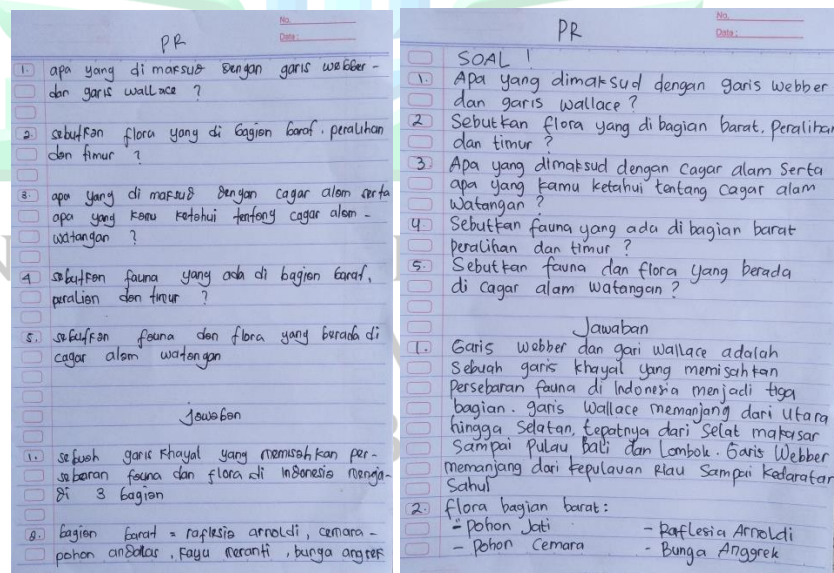 No.
Date:
PR
1. apa yang di maksud dengan garis webber -
dan garis wallace ?
2. sebutkan flora yang di bagian barat, peralihan
dan timur ?
3. apa yang di maksud dengan cagar alam serta
apa yang kamu ketahui tentang cagar alam -
watangan ?
4 sebutkan fauna yang ada di bagian barat,
peralian dan timur ?
5. sebutkan fauna dan flora yang berada di
cagar alam watangan
Jawaban
1. sebuah garis khayal yang memisahkan per -
sebaran fauna dan flora di indonesia menja -
di 3 bagian
2. bagian barat = raflesia arnoldi, cemara -
pohon andalas, kayu meranti, bunga angrek
No.
Date:
PR
SOAL !
1. Apa yang dimaksud dengan garis webber
dan garis wallace ?
2 Sebutkan flora yang di bagian barat, Peralihan
dan timur ?
3. Apa yang dimaksud dengan Cagar alam Serta
apa yang kamu ketahui tentang cagar alam
Watangan ?
4 Sebutkan fauna yang ada di bagian barat
Peralihan dan timur ?
5. Sebutkan fauna dan flora yang berada
di cagar alam watangan ?
Jawaban
1. Garis webber dan gari wallace adalah
Sebuah garis khayal yang memisahkan
Persebaran fauna di Indonesia menjadi tiga
bagian. garis Wallace memanjang dari Utara
hingga Selatan, tepatnya dari Selat makasar
Sampai Pulau Bali dan Lombok. Garis Webber
memanjang dari kepulauan Riau Sampai Kedaratan
Sahul
2. flora bagian barat :
- Pohon Jati - Raflesia Arnoldi
- Pohon Cemara - Bunga Anggrek